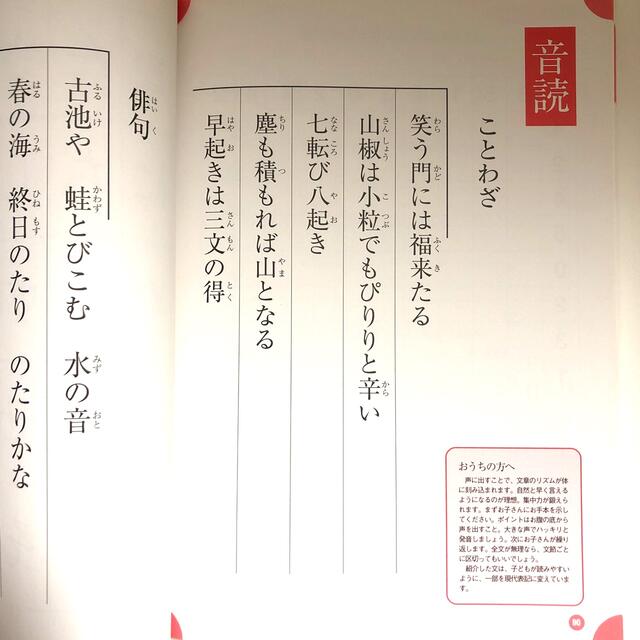 音読
ことわざ
笑う門には福来たる
山椒は小粒でもぴりりと辛い
七転び八起き
塵も積もれば山となる
早起きは三文の得
おうちの方へ
声に出すことで、文章のリズムが体
に刻み込まれます。自然と早く言える
ようになるのが理想。集中力が鍛えら
れます。まずお子さんにお手本を示し
てください。ポイントはお腹の底から
声を出すこと。大きな声でハッキリと
発音しましょう。次にお子さんが繰り
返します。全文が無理なら、文節ごと
に区切ってもいいでしょう。
紹介した文は、子どもが読みやすい
ように、一部を現代表記に変えていま
す。
90
俳句
古池や 蛙とびこむ 水の音
春の海 終日のたり のたりかな